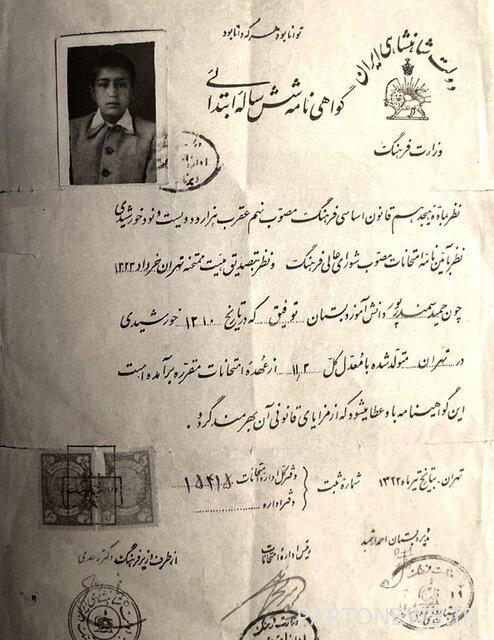 توانا بود هر که دانا بود
دولت شاهنشاهی ایران
گواهی نامه شش ساله ابتدائی
وزارت فرهنگ
نظر بماده هیجدهم قانون اساسی فرهنگ مصوب نهم عقرب هزار و دویست و نود خورشیدی
نظر بآئین نامه امتحانات مصوب شورای عالی فرهنگ و نظر بتصدیق هیئت ممتحنه تهران خرداد ۱۳۲۲
چون حمید سمندرپور دانش آموز دبستان توفیق که در تاریخ ۱۳۱۰ خورشیدی
در تهران متولد شده با معدل کل ۱۱٫۲ از عهده امتحانات مقرره برآمده است
این گواهینامه باو عطا میشود که از مزایای قانونی آن بهره مند گردد.
تهران. بتاریخ تیر ماه ۱۳۲۲ شماره ثبت
دفتر کل اداره امتحانات ۱۵۴۱۵
دفتر اداره
مدیر دبستان
رئیس اداره امتحانات
از طرف وزیر فرهنگ
PARTONEWS.IR